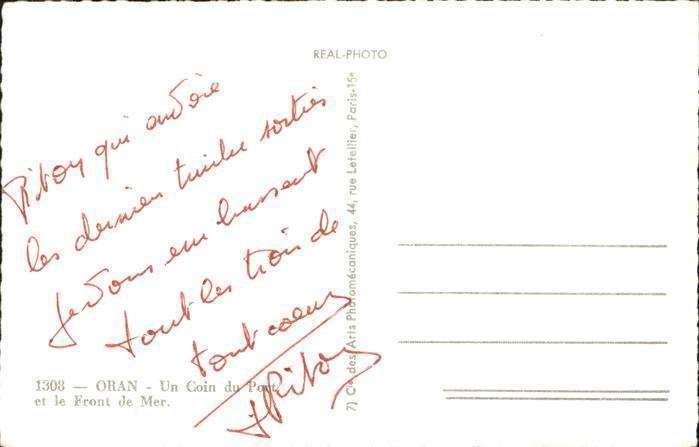 REAL-PHOTO
Ritou qui
les dernien timbre sorties
je vous embrassent
tout les trois de
tout coeur
Ritou
1308 — ORAN - Un Coin du Port
et le Front de Mer.
Cie des Arts Photomécaniques, 44, rue Letellier, Paris-15e